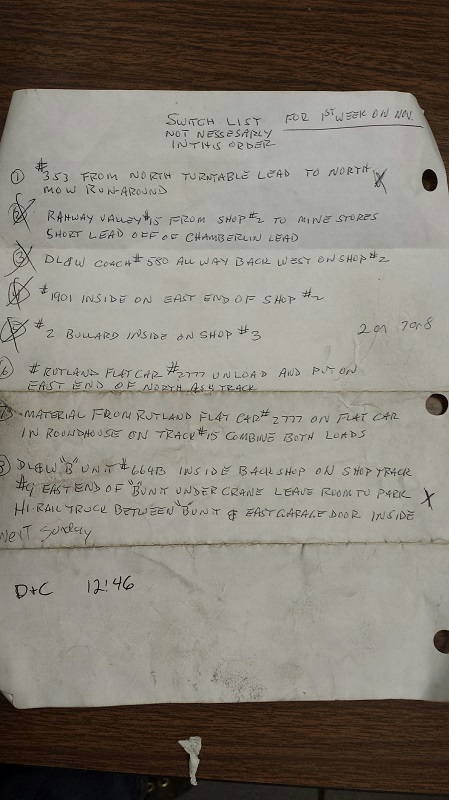 SWITCH LIST FOR 1ST WEEK ON NOV.
NOT NESSESARLY
IN THIS ORDER
① #353 FROM NORTH TURNTABLE LEAD TO NORTH X
MOW RUN-AROUND
② RAHWAY VALLEY #15 FROM SHOP #2 TO MINE STORES
SHORT LEAD OFF OF CHAMBERLIN LEAD
③ DL&W COACH #580 ALL WAY BACK WEST ON SHOP #2
④ #1901 INSIDE ON EAST END OF SHOP #2
⑤ #2 BULLARD INSIDE ON SHOP #3 2 on 7 on 8
⑥ # RUTLAND FLAT CAR #2777 UNLOAD AND PUT ON
EAST END OF NORTH ASH TRACK
⑦ MATERIAL FROM RUTLAND FLAT CAR #2777 ON FLAT CAR
IN ROUNDHOUSE ON TRACK #15 COMBINE BOTH LOADS
⑧ DL&W "B" UNIT #664B INSIDE BACKSHOP ON SHOP TRACK
#9 EAST END OF "B" UNIT UNDER CRANE LEAVE ROOM TO PARK X
HI-RAIL TRUCK BETWEEN "B" UNIT & EAST GARAGE DOOR INSIDE
Next Sunday
D+C 12:46